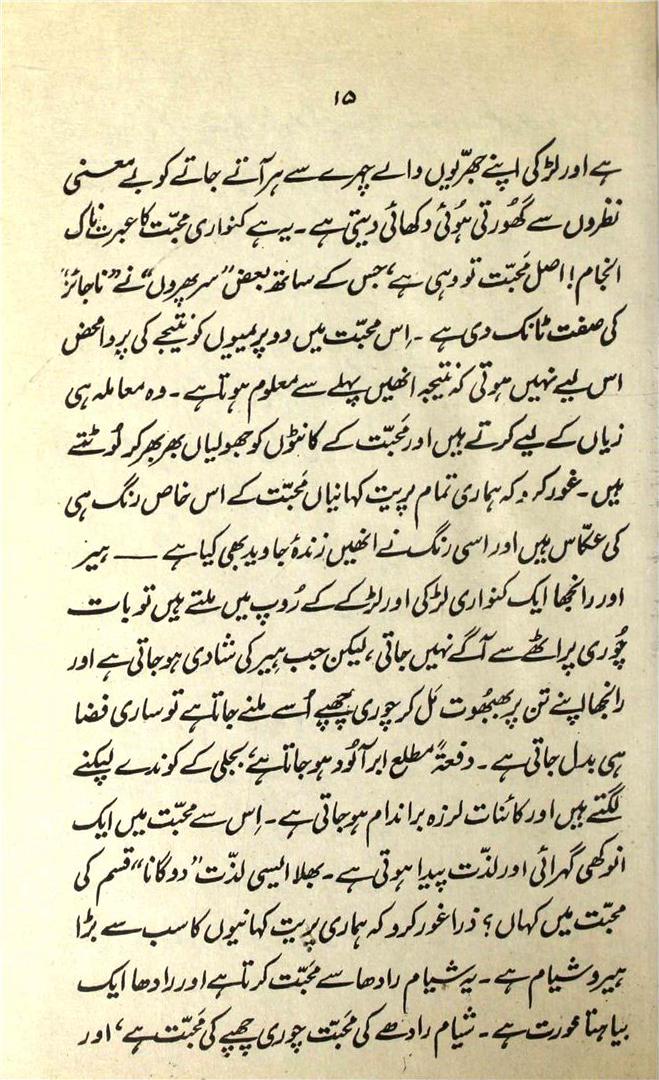 ۱۵
ہے اور لڑکی اپنے جھرّیوں والے چہرے سے ہر آتے جاتے کو بے معنی
نظروں سے گھُورتی ہُوئی دکھائی دیتی ہے۔ یہ ہے کنواری محبّت کا عبرت ناک
انجام! اصل مَحبّت تو وہی ہے، جس کے ساتھ بعض ”سرپھروں“ نے ”ناجائز“
کی صفت ٹانک دی ہے۔ اِس محبّت میں دو پریمیوں کو نتیجے کی پروا محض
اس لیے نہیں ہوتی کہ نتیجہ انھیں پہلے سے معلوم ہوتا ہے۔ وہ معاملہ ہی
زیاں کے لیے کرتے ہیں اور مَحبّت کے کانٹوں کو جھولیاں بھر بھر کر لُوٹتے
ہیں۔ غور کرو کہ ہماری تمام پریت کہانیاں مَحبّت کے اس خاص رنگ ہی
کی عکّاس ہیں اور اسی رنگ نے انھیں زندۂ جاوید بھی کیا ہے ــــ ہیر
اور رانجھا ایک کنواری لڑکی اور لڑکے کے رُوپ میں ملتے ہیں تو بات
چُوری پراٹھے سے آگے نہیں جاتی، لیکن جب ہیر کی شادی ہو جاتی ہے اور
رانجھا اپنے تن پر بھبھُوت مَل کر چوری چھپے اُسے ملنے جاتا ہے تو ساری فضا
ہی بدل جاتی ہے۔ دفعۃً مطلع ابر آلُود ہو جاتا ہے، بجلی کے کوندے لپکنے
لگتے ہیں اور کائنات لرزہ بر اندام ہو جاتی ہے۔ اِس سے محبّت میں ایک
انوکھی گہرائی اور لذّت پیدا ہوتی ہے۔ بھلا ایسی لذّت ”دوگانا“ قسم کی
محبّت میں کہاں؟ ذرا غور کرو کہ ہماری پریت کہانیوں کا سب سے بڑا
ہیرو شیام ہے۔ یہ شیام رادھا سے مَحبّت کرتا ہے اور رادھا ایک
بیاہتا عورت ہے۔ شیام رادھے کی مَحبّت چوری چھپے کی مَحبّت ہے، اور